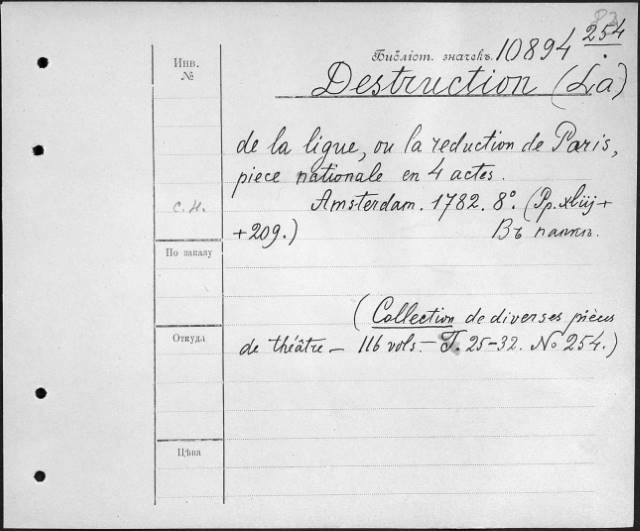 83
254
Инв.
№
Библіот. значекъ. 10894
Destruction (La)
de la ligue, ou la reduction de Paris,
piece nationale en 4 actes.
с.н. Amsterdam. 1782. 8°. (Pp. xliij+
+209.) Въ папкѣ.
По заказу
(Collection de diverses pièces
Откуда
de théâtre — 116 vols. — T. 25-32. No 254.)
Цѣна